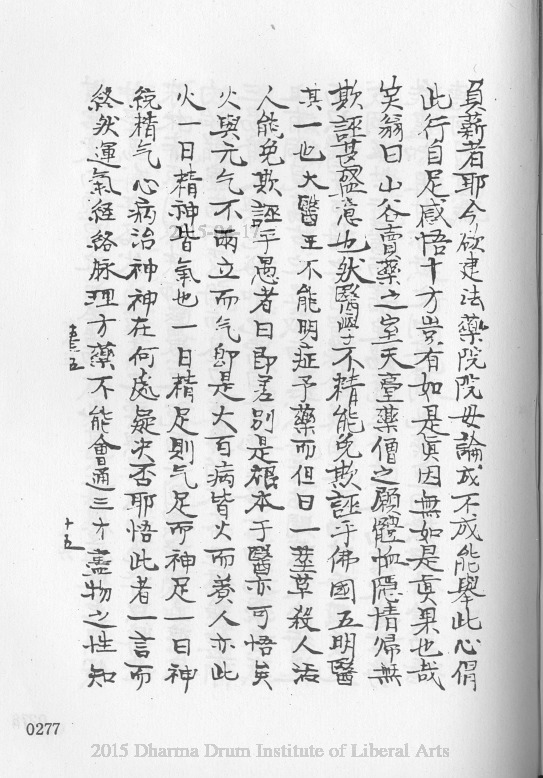 負薪者耶今欲建法藥院院毋論成不成能舉此心倡
此行自足感悟十方豈有如是眞因無如是眞果也哉
笑翁曰山谷賣藥之室天臺藥僧之願體恤隱情歸無
欺誣甚盛意也狀醫學不精能免欺誣乎佛國五明醫
其一也大醫王不能明症予藥而但曰一莖草殺人活
人能免欺誣乎愚者曰即差別是根本于醫亦可悟矣
火與元气不兩立而气即是火百病皆火而養人亦此
火一曰精神皆氣也一曰精足則气足而神足一曰神
統精气心病治神神在何處疑決否耶悟此者一言而
終狀運氣經絡脉理方藥不能會通三才盡物之性知
五
十五
0277
2015 Dharma Drum Institute of Liberal Arts